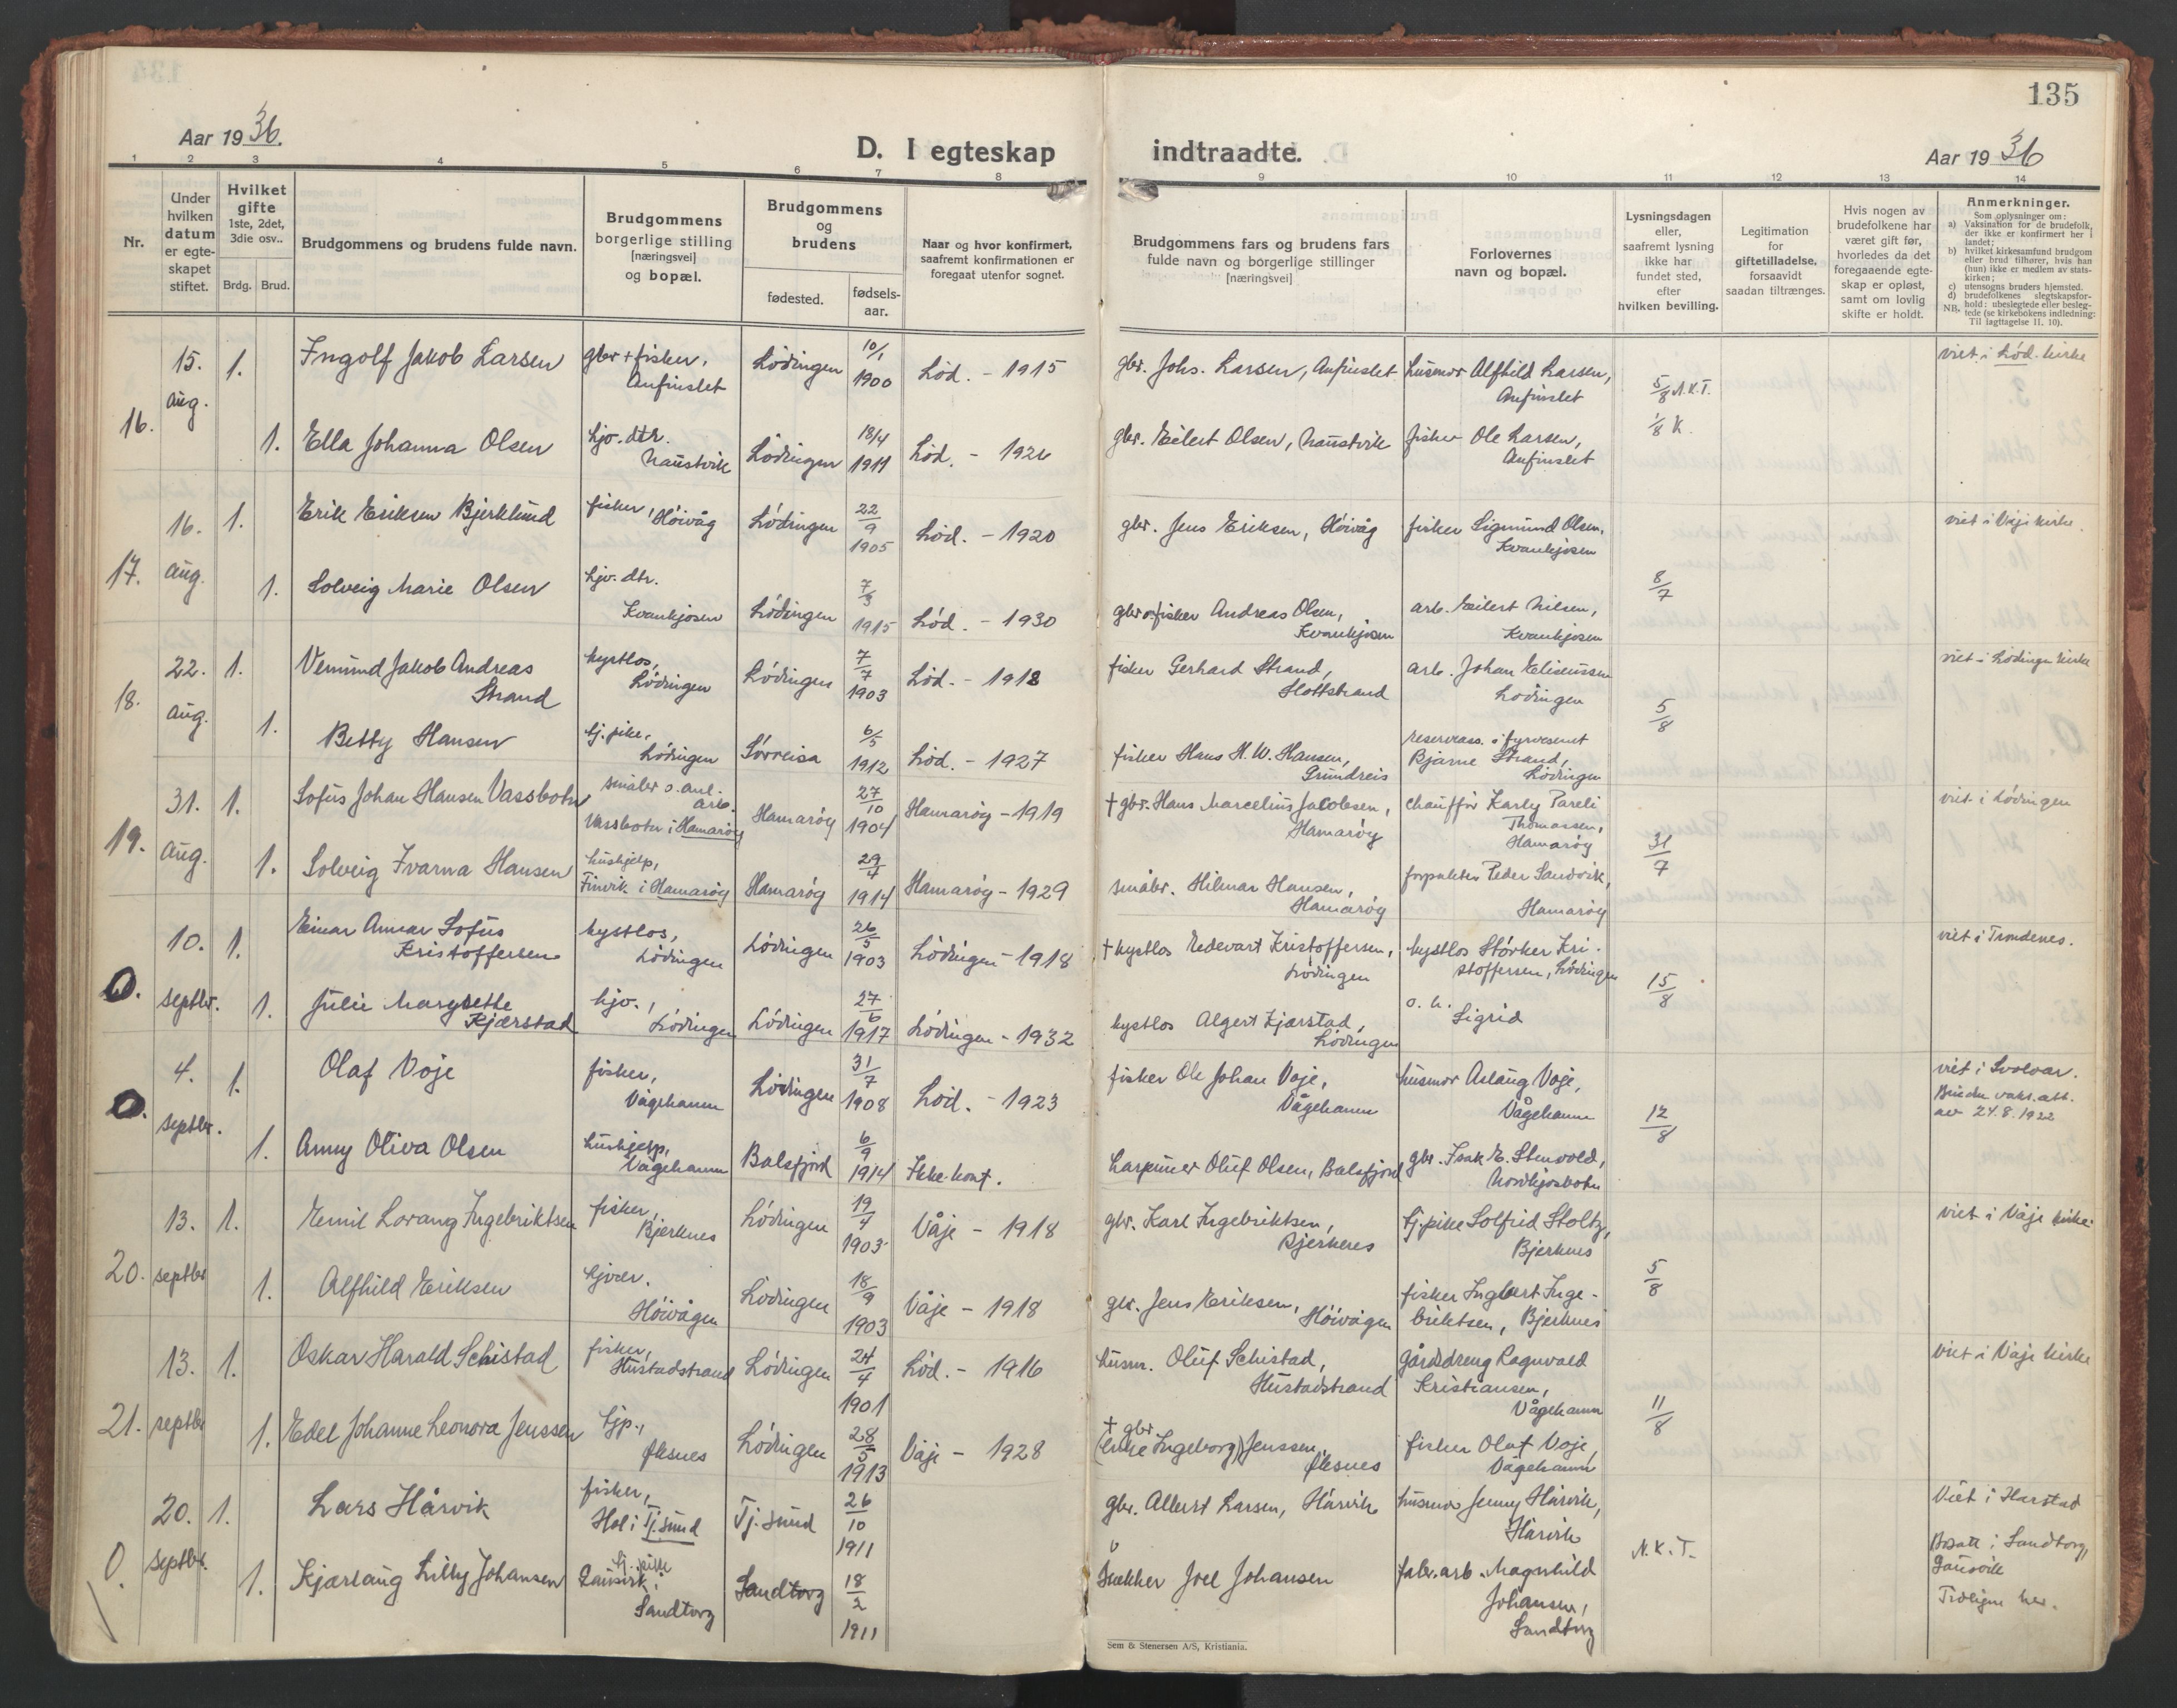 135
Aar 1936.
D. I egteskap indtraadte.
Aar 1936
1 2 3 4 5 6 7 8 9 10 11 12 13 14
Nr.
Under hvilken datum er egte- skapet stiftet.
Hvilket gifte 1ste, 2det, 3die osv..
Brdg. Brud.
Brudgommens og brudens fulde navn.
Brudgommens borgerlige stilling [næringsvei] og bopæl.
Brudgommens og brudens
fødested.
fødsels- aar.
Naar og hvor konfirmert, saafremt konfirmationen er foregaat utenfor sognet.
Brudgommens fars og brudens fars fulde navn og borgerlige stillinger [næringsvei]
Forlovernes navn og bopæl.
Lysningsdagen eller, saafremt lysning ikke har fundet sted, efter hvilken bevilling.
Legitimation for giftetilladelse, forsaavidt saadan tiltrænges.
Hvis nogen av brudefolkene har været gift før, hvorledes da det foregaaende egte- skap er opløst, samt om lovlig skifte er holdt.
Anmerkninger.
Som oplysninger om:
a) Vaksination for de brudefolk, der ikke er konfirmert her i landet;
b) hvilket kirkesamfund brudgom eller brud tilhører, hvis han (hun) ikke er medlem av stats- kirken;
c) utensogns bruders hjemsted.
d) brudefolkenes slegtskapsfor- hold: ubeslegtede eller besleg- tede (se kirkebokens indledning:
NB. Til iagttagelse II. 10).
16. 15. aug. 1. Ingolf Jakob Larsen gbr + fisker, Anfinslet Lödingen 10/1 1900 Löd. - 1915 gbr. Johs. Larsen, Anfinslet husmor Alfhild Larsen, Anfinslet 5/8 N.K.T. viet i Löd. kirke
1. Ella Johanna Olsen hjv. dtr. Naustvik Lödingen 18/4 1911 Löd. - 1926 gbr. Eilert Olsen, Naustvik fisker Ole Larsen, Anfinslet 1/8 K.
17. 16. aug. 1. Erik Eriksen Bjerklund fisker, Höivåg Lödingen 22/9 1905 Löd. - 1920 gbr. Jens Eriksen, Höivåg fisker Sigmund Olsen, Kvankjosen viet i Våje kirke.
1. Solveig Marie Olsen hjv. dtr. Kvankjosen Lödingen 7/3 1915 Löd. - 1930 gbr o. fisker Andreas Olsen, Kvankjosen arb. Eilert Nilsen, Kvankjosen 8/7
18. 22. aug. 1. Vemund Jakob Andreas Strand kystlos, Lödingen Lödingen 7/7 1903 Löd. - 1918 fisker Gerhard Strand, Slottstrand arb. Johan Eliseussen Lödingen 5/8 viet i Lödingen kirke
1. Betty Hansen tj. pike, Lödingen Sörreisa 6/5 1912 Löd. - 1927 fisker Hans H. W. Hansen, Grundreis reserveass. i fyrvesenet Bjarne Strand, Lödingen
19. 31. aug. 1. Sofus Johan Hansen Vassbotn småbr o. anl. arb. Vassbotn i Hamaröy Hamaröy 27/10 1904 Hamaröy - 1919 † gbr. Hans Marcelius Jacobsen, Hamaröy chaufför Karly Pareli Thomassen, Hamaröy 31/7 viet i Lödingen
1. Solveig Ivarna Hansen hushjelp, Finvik i Hamaröy Hamaröy 29/7 1914 Hamaröy - 1929 småbr. Hilmar Hansen, Hamaröy forpakter Peder Sandvik, Hamaröy
0. 10. septbr. 1. Einar Annar Sofus Kristoffersen kystlos, Lödingen Lödingen 26/5 1903 Lödingen - 1918 † kystlos Edevart Kristoffersen, Lödingen kystlos Störker Kristoffersen, Lödingen 15/8 viet i Trondenes.
1. Julie Margrethe Kjærstad hjv., Lödingen Lödingen 27/6 1917 Lödingen - 1932 kystlos Algert Kjærstad, Lödingen o. h. Sigrid
0. 4. septbr. 1. Olaf Voje fisker, Vågehamn Lödingen 31/7 1908 Löd. - 1923 fisker Ole Johan Voje, Vågehamn husmor Aslaug Voje, Vågehamn 12/8 viet i Svolvær. Bruden vaks. att. av 24.8.1922
1. Anny Oliva Olsen hushjelp, Vågehamn Balsfjord 6/9 1914 Ikke konf. harpuner Oluf Olsen, Balsfjord gbr. Isak E. Stenvold, Nordkjosbotn
20. 13. septbr 1. Emil Lorang Ingebriktsen fisker, Bjerknes Lödingen 19/4 1903 Våje - 1918 gbr. Karl Ingebriktsen, Bjerknes tj. pike Solfrid Stoltz, Bjerknes 5/8 viet i Våje kirke.
1. Alfhild Eriksen hjvær. Höivågen Lödingen 18/9 1903 Våje - 1918 gbr. Jens Eriksen, Höivågen fisker Ingbert Ingebriktsen, Bjerknes
21. 13. septbr 1. Oskar Harald Schistad fisker, Hustadstrand Lödingen 24/4 1901 Löd. - 1916 husm. Oluf Schistad, Hustadstrand gårdsdreng Ragnvald Kristiansen, Vågehamn 11/8 viet i Våje kirke
1. Edel Johanne Leonora Jenssen tjp., Öksnes Lödingen 28/5 1913 Våje - 1928 † gbr (enke Ingeborg) Jenssen, Öksnes fisker Olaf Voje, Vågehamn
0. 20. septbr. 1. Lars Hårvik fisker, Hol i Tj.sund Tj.sund 26/10 1911 gbr. Albert Larsen, Hårvik husmor Jenny Hårvik, Hårvik N.K.T. Viet i Harstad
1. Kjærlaug Lilly Johansen tj. pike Gausvik, Sandtorg Sandtorg 18/2 1911 Snekker Joel Johansen fabr. arb. Magnhild Johansen, Sandtorg Bosatt i Sandtorg, Gausvik
Tidligere her.
Sem & Stenersen A/S, Kristiania.